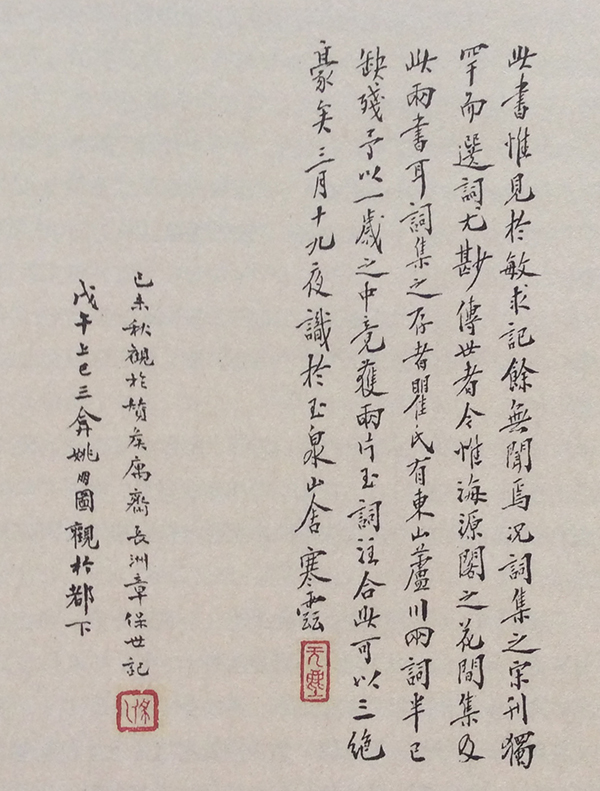 此書惟見於敏求記餘無聞焉况詞集之宋刊獨
罕而選詞尤尠傳世者今惟海源閣之花間集及
此兩書耳詞集之存者瞿氏有東山蘆川兩詞半已
缺殘予以一歲之中竟獲兩片玉詞註合此可以三絶
豪矣三月十九夜識於玉泉山舍寒雲
无塵
己未秋觀於贊矦寓齋長洲章保世記
戊午上巳三弇姚朋圖觀於都下